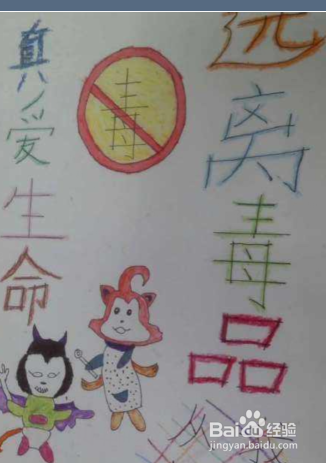 远离毒品
毒
真爱生命
Baidu 经验
jingyan.baidu.com